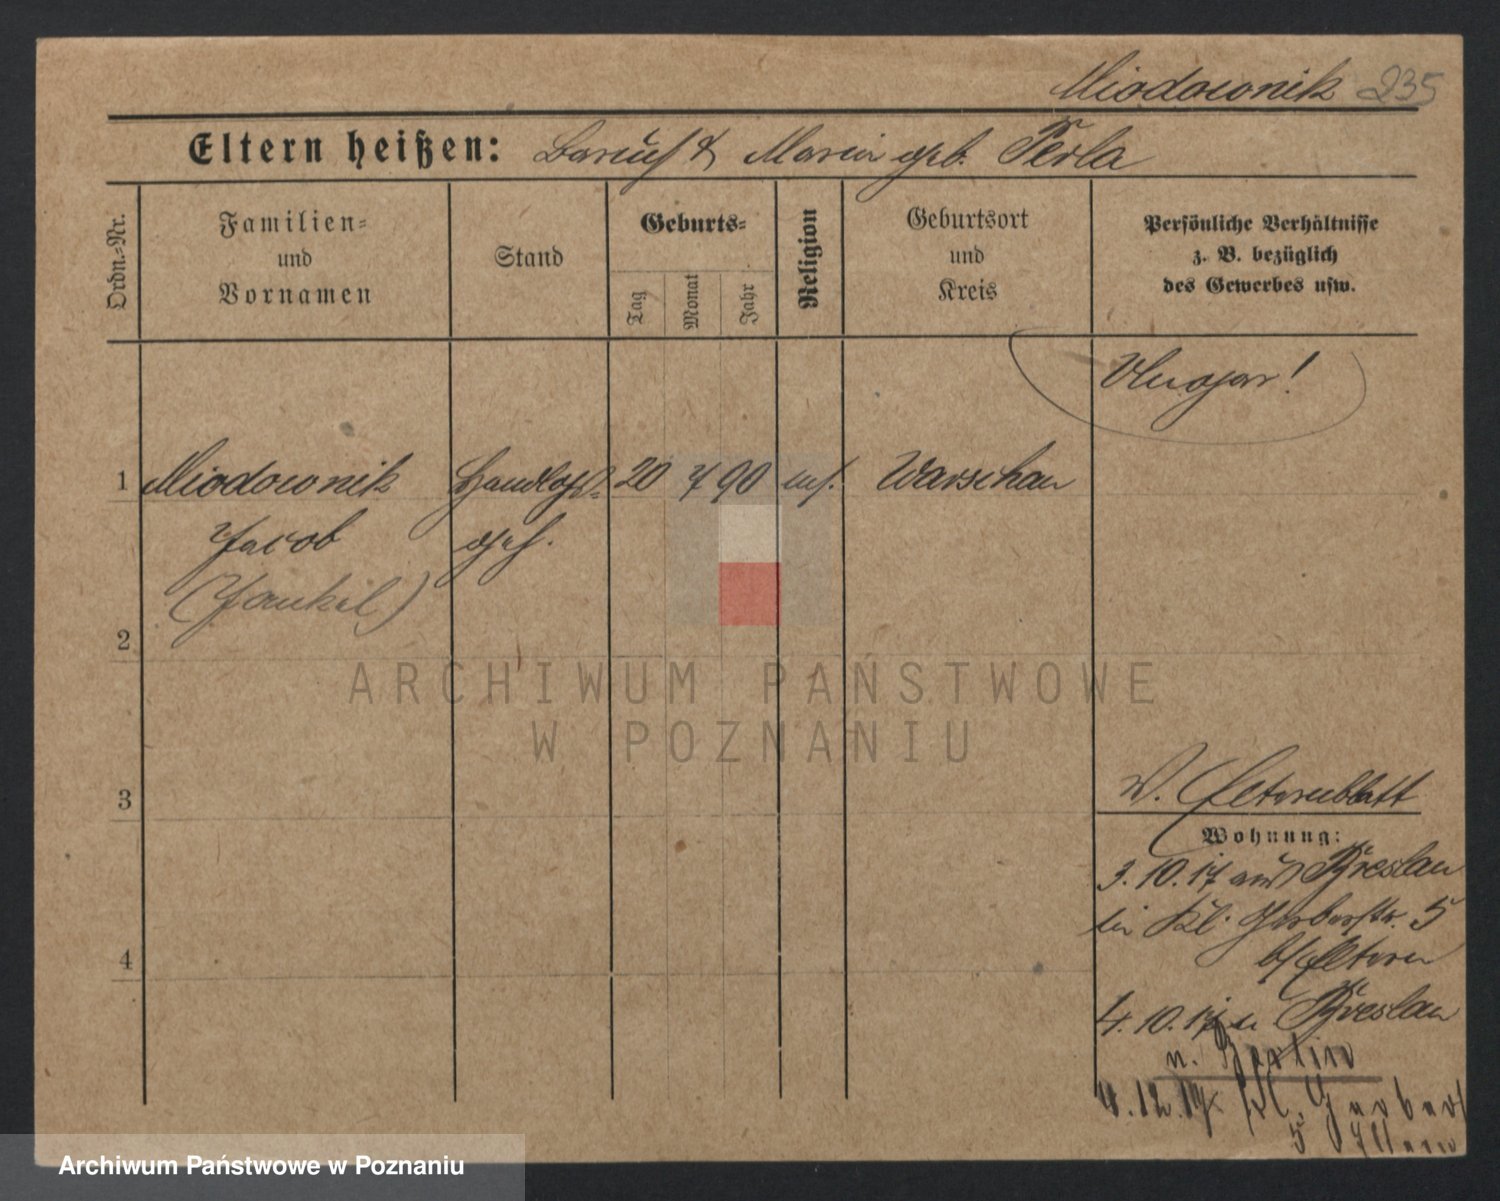 Miodownik 235
Eltern heißen: Baruch & Maria geb. Perla
Ordn.-Nr.
Familien-
und
Vornamen
Stand
Geburts-
Tag
Monat
Jahr
Religion
Geburtsort
und
Kreis
Persönliche Verhältnisse
z. B. bezüglich
des Gewerbes usw.
1 Miodownik 20 7 90 Warschau
Jacob geh.
(Jankel)
2
3
4
ARCHIWUM PAŃSTWOWE
W POZNANIU
Elternblatt
Wohnung:
3.10.17 aus Breslau
in Kl. Gerberstr. 5
b/Eltern
4.10.17 n Breslau
n. Berlin
4.12.17 Kl. Gerberst
5 Eltern
Archiwum Państwowe w Poznaniu